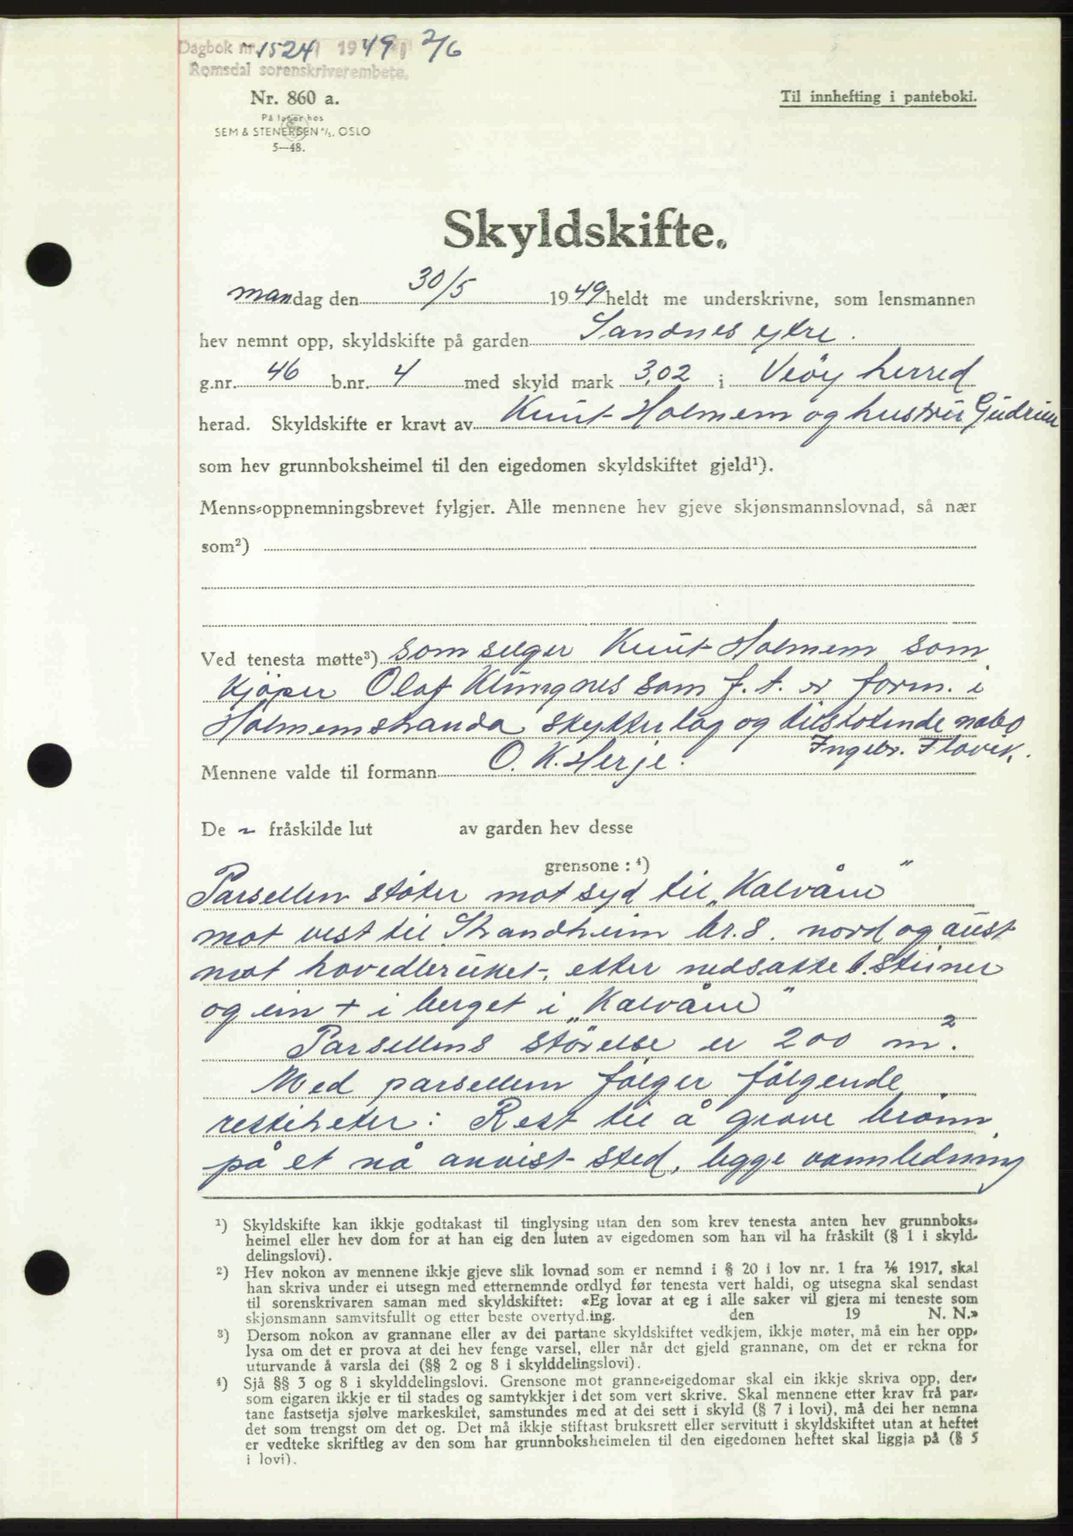 Dagbok nr. 1524 1949 2/6
Romsdal sorenskriverembete.
Nr. 860 a.
Til innhefting i panteboki.
På lager hos
SEM & STENERSEN A/S. OSLO
5—48.
Skyldskifte.
mandag den 30/5 1949 heldt me underskrivne, som lensmannen
hev nemnt opp, skyldskifte på garden Sandnes ytre.
g.nr. 46 b.nr. 4 med skyld mark 3,02 i Veöy herred
herad. Skyldskifte er kravt av Knut Holmem og hustru Gudrun
som hev grunnboksheimel til den eigedomen skyldskiftet gjeld¹).
Menns-oppnemningsbrevet fylgjer. Alle mennene hev gjeve skjønsmannslovnad, så nær
som²)
Ved tenesta møtte³) som selger Knut Holmem som
kjöper Olaf Klungnes som f. t. er form. i
Holmemstranda skytterlag og tilstötende nabo
Ingebr. Flovik.
Mennene valde til formann O. K. Herje.
De ~ fråskilde lut av garden hev desse
grensone : ⁴)
Parsellen stöter mot syd til „Kalvåne"
mot vest til Strandheim br. 8. nord og aust
mot hovedbruket, etter nedsatte 6. steiner
og ein + i berget i „Kalvåne"
Parsellens störelse er 200 m².
Med parsellen fölger fölgende
rettiheter: Rett til å grave brönn
på et nå anvist sted, legge vannledning
¹) Skyldskifte kan ikkje godtakast til tinglysing utan den som krev tenesta anten hev grunnboks-
heimel eller hev dom for at han eig den luten av eigedomen som han vil ha fråskilt (§ 1 i skyld-
delingslovi).
²) Hev nokon av mennene ikkje gjeve slik lovnad som er nemnd i § 20 i lov nr. 1 fra ⅙ 1917, skal
han skriva under ei utsegn med etternemnde ordlyd før tenesta vert haldi, og utsegna skal sendast
til sorenskrivaren saman med skyldskiftet: «Eg lovar at eg i alle saker vil gjera mi teneste som
skjønsmann samvitsfullt og etter beste overtyding. den 19 N. N.»
³) Dersom nokon av grannane eller av dei partane skyldskiftet vedkjem, ikkje møter, må ein her opp-
lysa om det er prova at dei hev fenge varsel, eller når det gjeld grannane, om det er rekna for
uturvande å varsla dei (§§ 2 og 8 i skylddelingslovi).
⁴) Sjå §§ 3 og 8 i skylddelingslovi. Grensone mot granne-eigedomar skal ein ikkje skriva opp, der-
som eigaren ikkje er til stades og samtykkjer i det som vert skrive. Skal mennene etter krav frå par-
tane fastsetja sjølve markeskilet, samstundes med at dei sett i skyld (§ 7 i lovi), må dei her nemna
det som trengst om det og. Det må ikkje stiftast bruksrett eller servitutt i skyldskiftet utan at heftet
er vedteke skriftleg av den som har grunnboksheimelen til den eigedomen heftet skal liggja på (§ 5
i lovi).